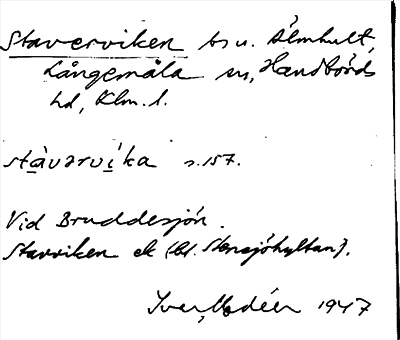 Staverviken bs u. Älmhult,
Långemåla sn, Handbörds
hd, Klm. l.
stàvərvíka s. 157.
Vid Bruddesjön.
Stavviken ek (bl. Stensjöhyltan).
Ivar Modéer 1947